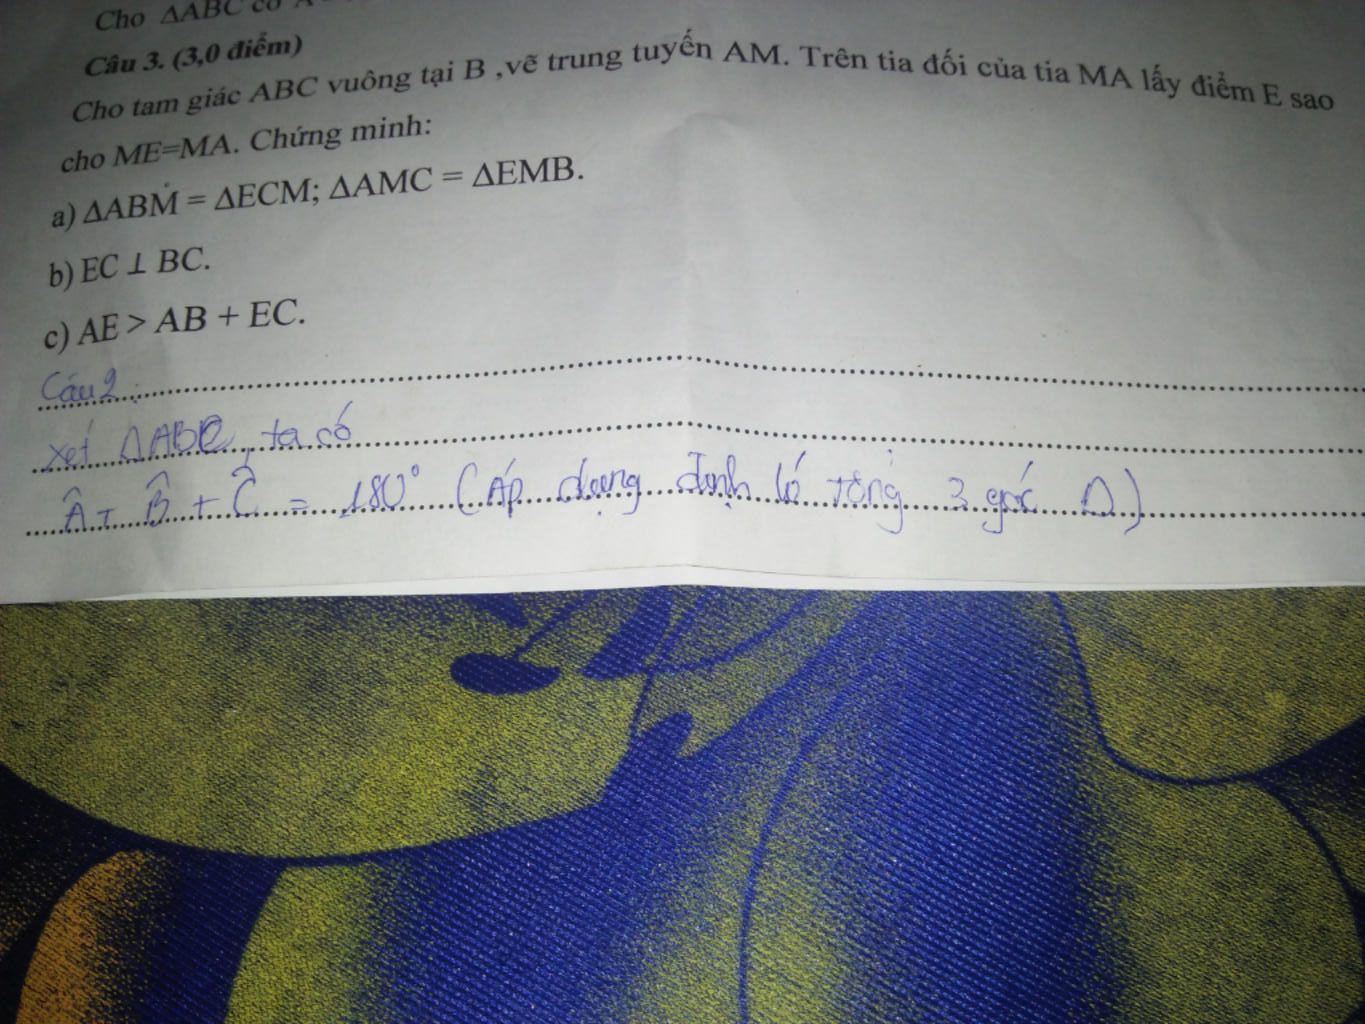 Cho ΔABC có A
Câu 3. (3,0 điểm)
Cho tam giác ABC vuông tại B ,vẽ trung tuyến AM. Trên tia đối của tia MA lấy điểm E sao
cho ME=MA. Chứng minh:
a) ΔABM = ΔECM; ΔAMC = ΔEMB.
b) EC ⊥ BC.
c) AE > AB + EC.
Câu 2:
xét ΔABC, ta có
Â + B̂ + Ĉ = 180° (Áp dụng định lí tổng 3 góc Δ)